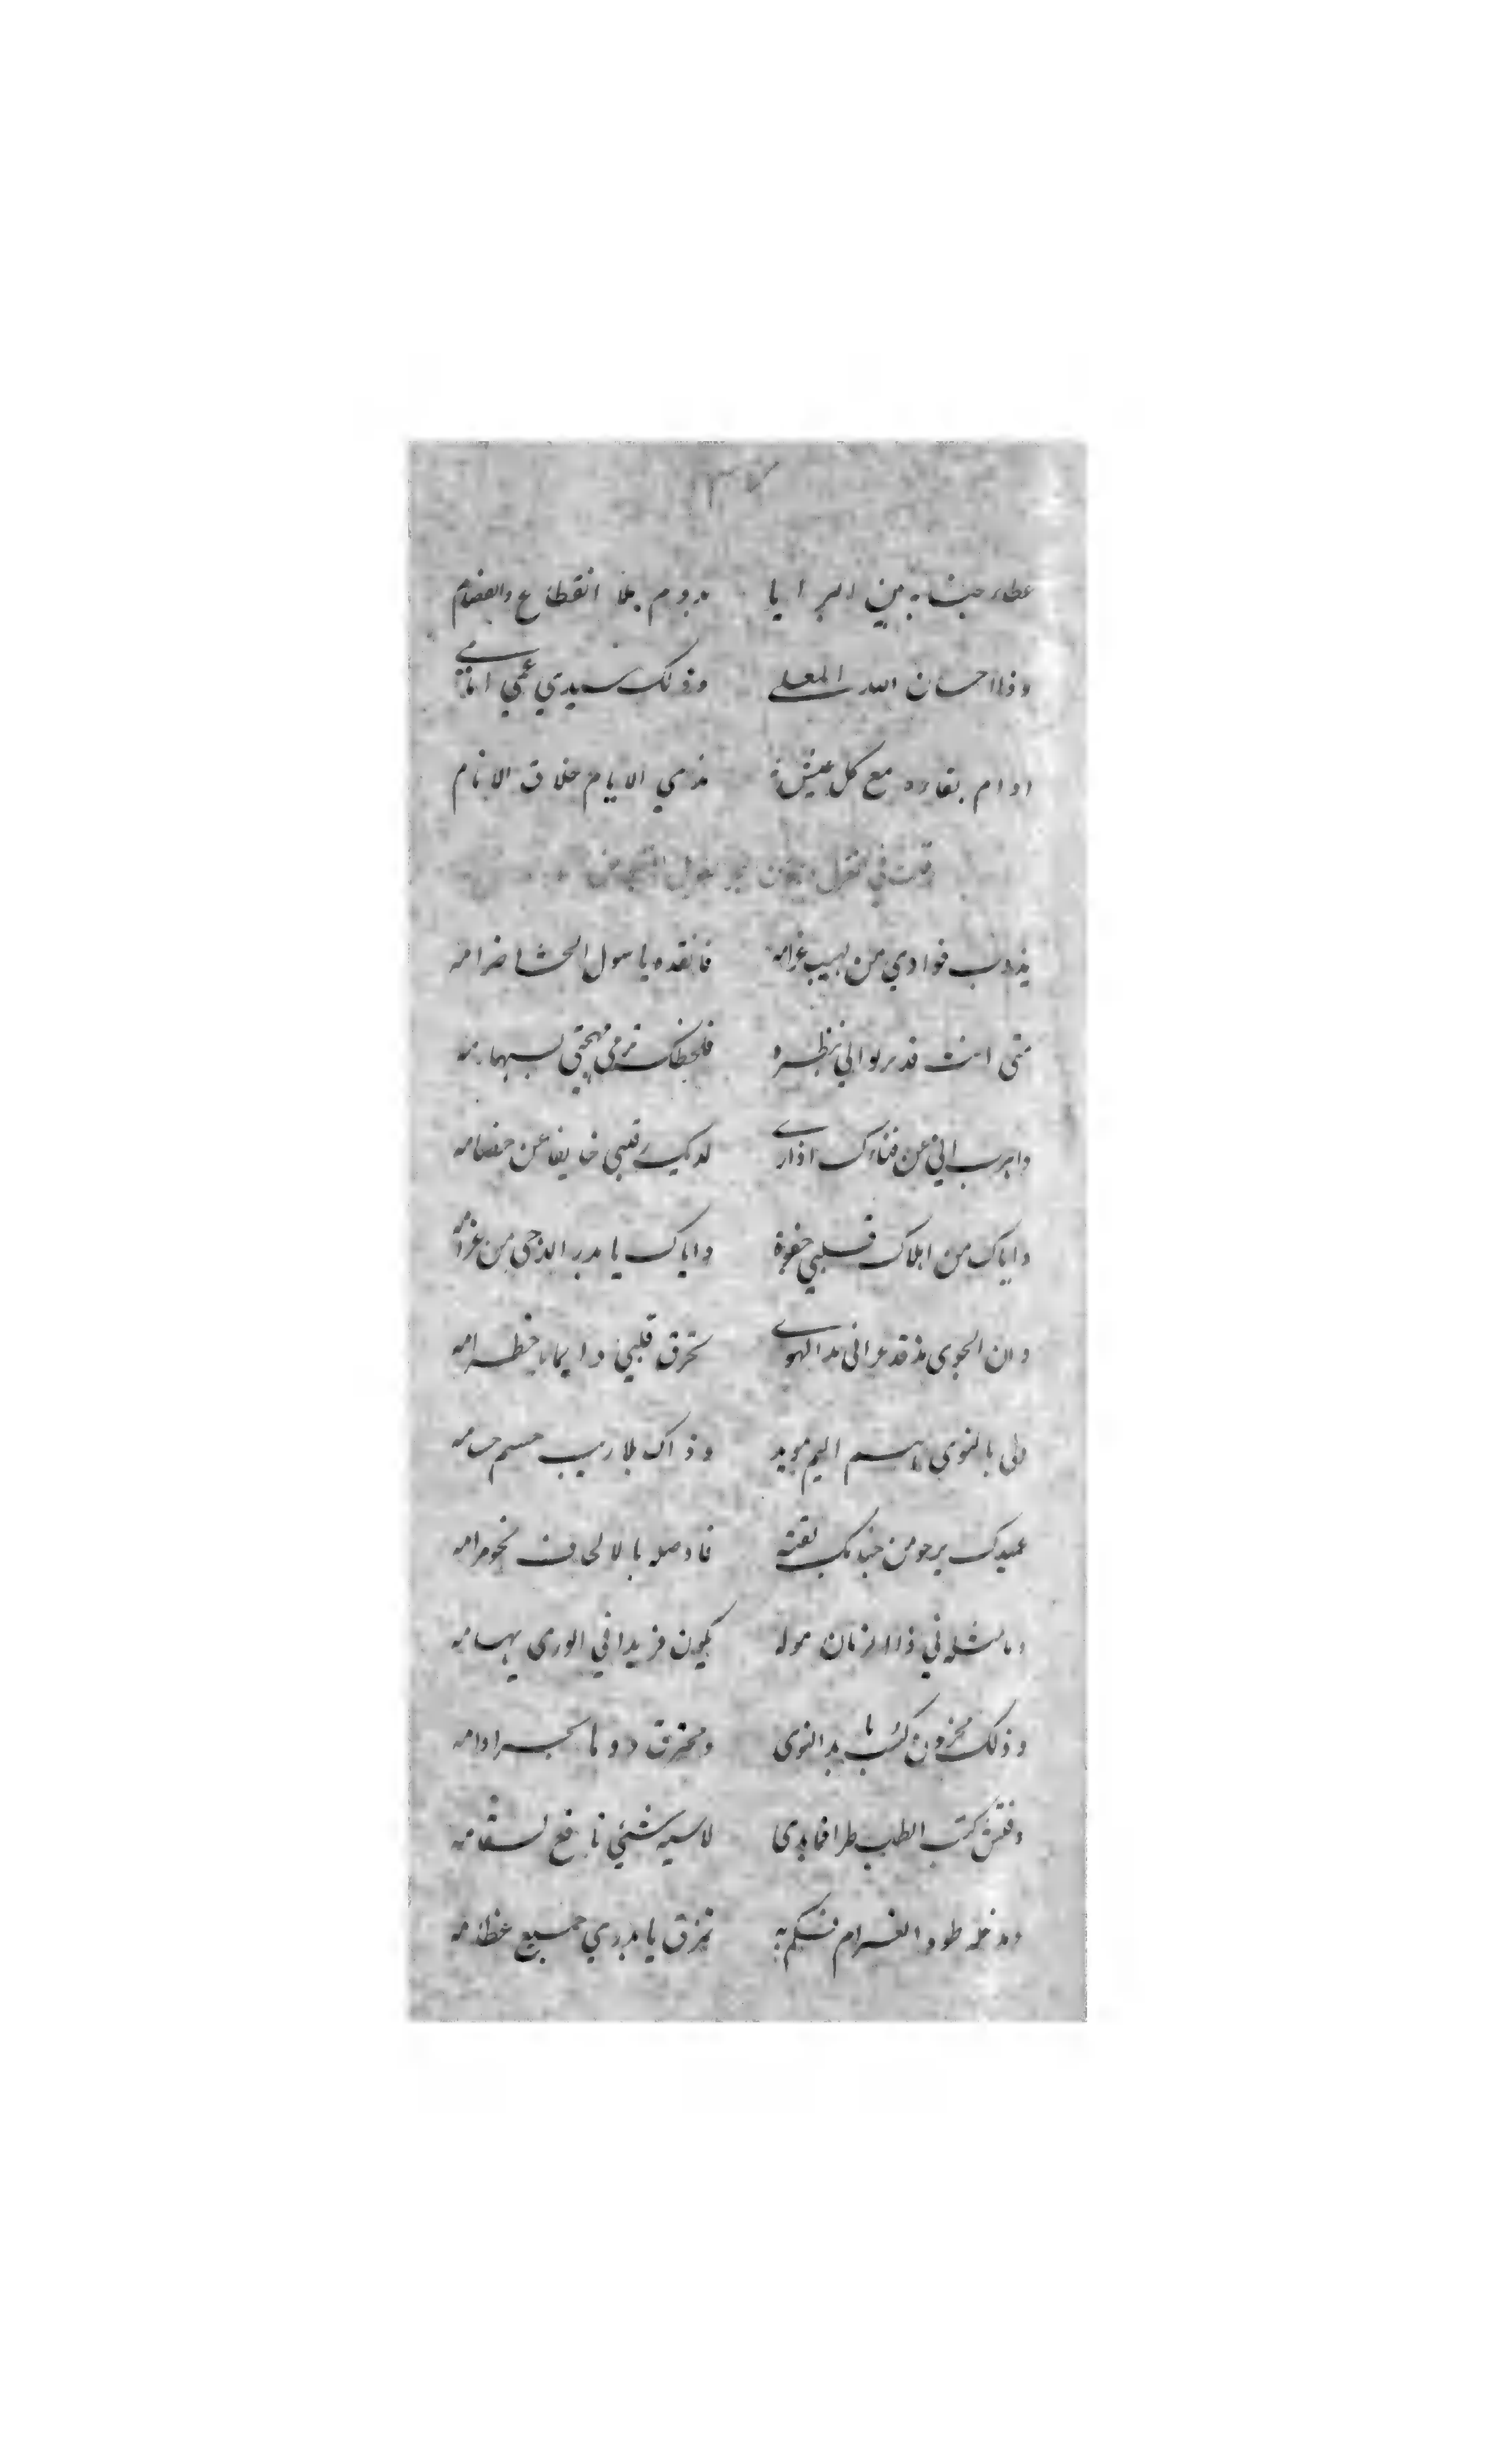 عطاء جنابه بين البرايا يدوم بلا انقطاع وانفصام
وذا احسان الله المعلى وذلك سيدي عمي امامي
ادام بقاءه مع كل عيش مدى الايام خلاق الانام
وقلت في الغزل
يذوب فوادي من لهيب غرامه فانقده يا سول الحشا ضرامه
متى انت قد ترنوا الي بنظرة فلحظك ترمي مهجتي بسهامه
واهرب اني عن فناءك اذ ارى لديك رقيبي خايفا عن خصامه
واياك من اهلاك قلبي جفوة واياك يا بدر الدجى من غرامه
وان الجوى مذ قد عراني يد الهوى تحرق قلبي دايما باضطرامه
ولى بالنوى هم اليم مويد وذاك بلا ريب حسم حسامه
عبيدك يرجو من جنابك فاوصله بالالحاف نحو مرامه
وما مثله في ذا الزمان موله يكون فريدا في الورى بهيامه
وذلك محزون كئيب بد النوى ومحترق دوما بحر اوامه
وفتش كتب الطب طرا فما يدى لاسيه شئي نافع لسقامه
ومد خله طود الغرام فسكم به تمزق يا بدري جميع عظامه